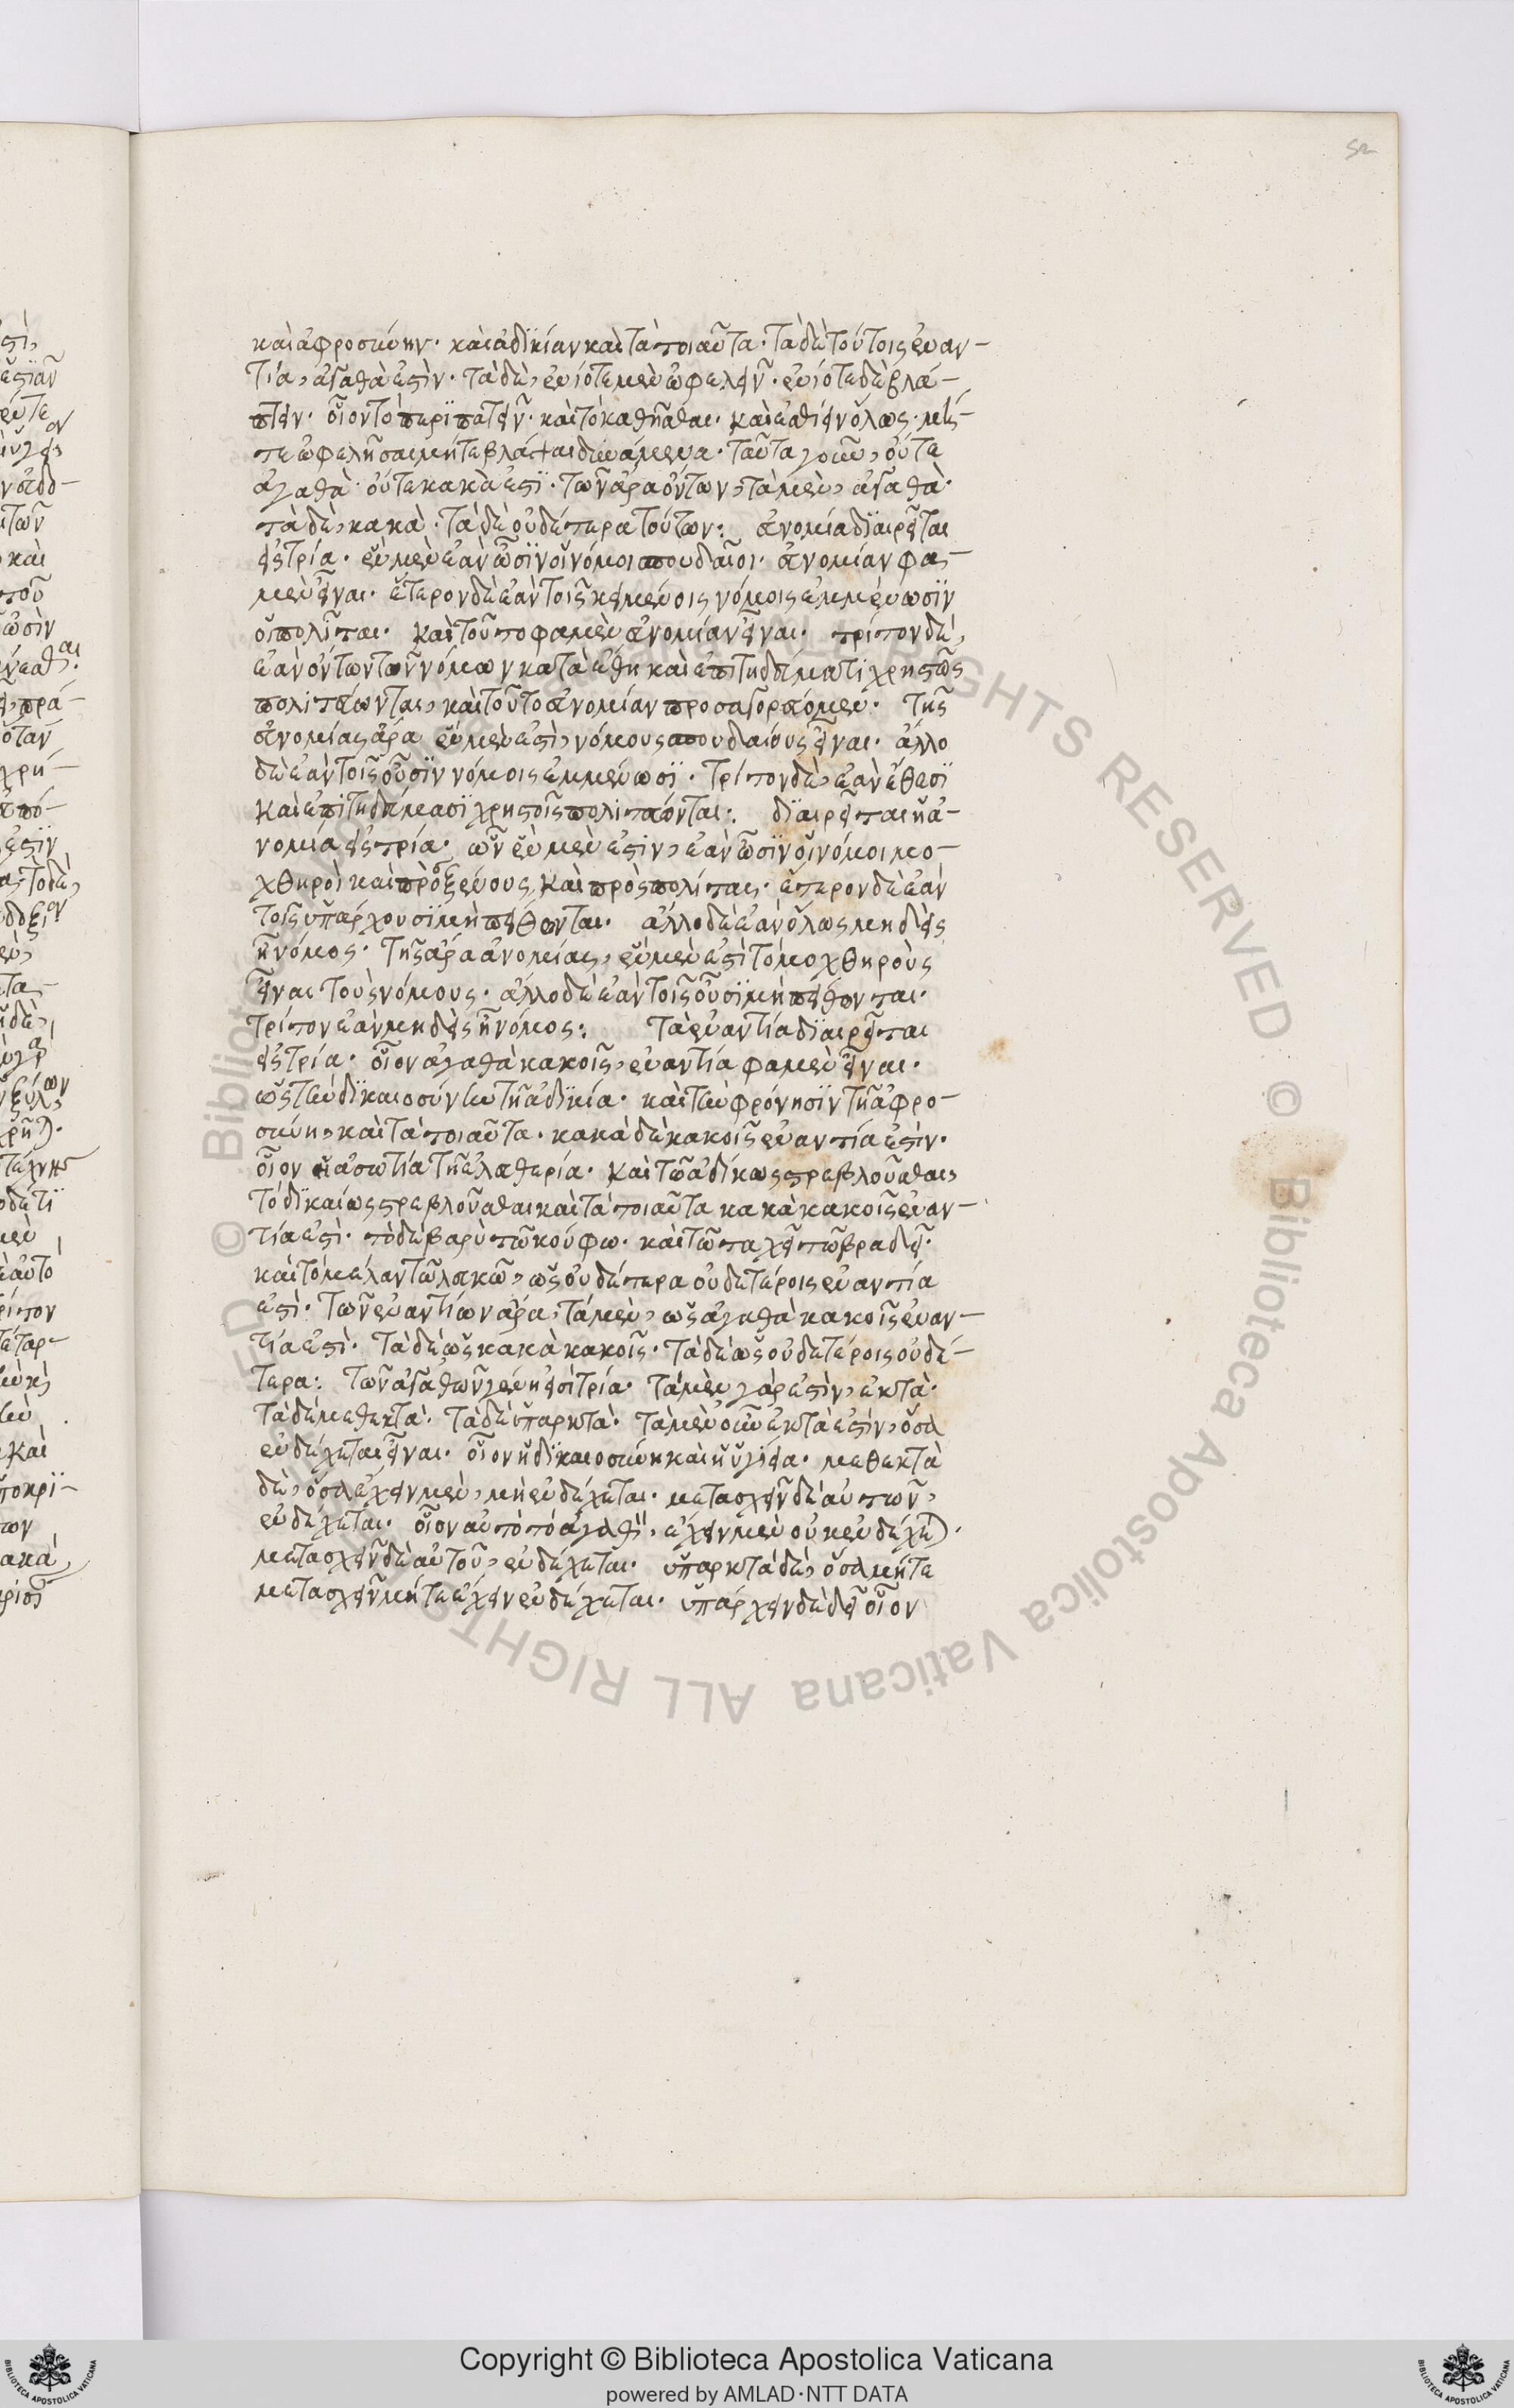 52
καὶ ἀφροσύνην· καὶ ἀδικίαν καὶ τὰ τοιαῦτα· τὰ δὲ τούτοις ἐναν-
τία, ἀγαθὰ ἐστὶν· τὰ δὲ, ἐνίοτε μὲν ὠφελεῖν· ἐνίοτε δὲ βλά-
πτειν· οἷον τὸ περιπατεῖν· καὶ τὸ καθῆσθαι· καὶ ἐσθίειν ὅλως· μή-
τε ὠφελῆσαι μήτε βλάψαι δυνάμενα· ταῦτα γοῦν, οὔτε
ἀγαθὰ οὔτε κακὰ ἐστί· τῶν ἄρα ὄντων, τὰ μὲν, ἀγαθὰ·
τὰ δὲ, κακὰ· τὰ δὲ οὐδέτερα τούτων: ἀνομία διαιρεῖται
εἰς τρία· ἓν μὲν ἐὰν ὦσιν οἱ νόμοι σπουδαῖοι· ἀνομίαν φα-
μὲν εἶναι· ἕτερον δὲ ἐὰν τοῖς κειμένοις νόμοις ἐμμένωσιν
οἱ πολῖται· καὶ τοῦτο φαμὲν ἀνομίαν εἶναι· τρίτον δὲ,
ἐὰν ὄντων τῶν νόμων κατὰ ἔθη καὶ ἐπιτηδεύματι χρηστῶς
πολιτεύωνται, καὶ τοῦτο ἀνομίαν προσαγορεύομεν· τῆς
ἀνομίας ἄρα ἓν μὲν ἐστὶ, νόμους σπουδαίους εἶναι· ἄλλο
δὲ ἐὰν τοῖς οὖσιν νόμοις ἐμμένωσι· τρίτον δὲ, ἐὰν ἔθεσι
καὶ ἐπιτηδεύμασι χρηστοῖς πολιτεύονται: διαιρεῖται ἡ ἀ-
νομία εἰς τρία· ὧν ἓν μὲν ἐστιν, ἐὰν ὦσιν οἱ νόμοι μο-
χθηροὶ καὶ πρὸς ξένους, καὶ πρὸς πολίτας· ἕτερον δὲ ἐὰν
τοῖς ὑπάρχουσι μὴ πείθονται· ἄλλο δὲ ἐὰν ὅλως μηδεὶς
ἦ νόμος· τῆς ἄρα ἀνομίας, ἓν μὲν ἐστὶ τὸ μοχθηροὺς
εἶναι τοὺς νόμους· ἄλλο δὲ ἐὰν τοῖς οὖσι μὴ πείθονται·
τρίτον ἐὰν μηδεὶς ἦ νόμος: τὰ ἐναντία διαιρεῖται
εἰς τρία· οἷον ἀγαθὰ κακοῖς, ἐναντία φαμὲν εἶναι·
ὡς τὴν δικαιοσύνην τῆ ἀδικία· καὶ τὴν φρόνησιν τῆ ἀφρο-
σύνη, καὶ τὰ τοιαῦτα· κακὰ δὲ κακοῖς ἐναντία ἐστὶν·
οἷον ἡ ἀσωτία τῆ ἐλευθερία· καὶ τῶ ἀδίκως στρεβλοῦσθαι,
τὸ δικαίως στρεβλοῦσθαι καὶ τὰ τοιαῦτα κακὰ κακοῖς ἐναν-
τία ἐστὶ· τὸ δὲ βαρὺ τῶ κούφω· καὶ τῶ ταχεῖ τῶ βραδεῖ·
καὶ τὸ μέλαν τῶ λευκῶ, ὡς οὐδέτερα οὐδετέροις ἐναντία
ἐστὶ· τῶν ἐναντίων ἄρα, τὰ μὲν, ὡς ἀγαθὰ κακοῖς ἐναν-
τία ἐστὶ· τὰ δὲ ὡς κακὰ κακοῖς· τὰ δὲ ὡς οὐδετέροις οὐδέ-
τερα: τῶν ἀγαθῶν γένη εἰσὶ τρία· τὰ μὲν γὰρ ἐστὶν, ἑκτὰ·
τὰ δὲ μεθεκτὰ· τὰ δὲ ὑπαρκτὰ· τὰ μὲν οὖν ἑκτὰ ἐστὶν, ὅσα
ἐνδέχεται εἶναι· οἷον ἡ δικαιοσύνη καὶ ἡ ὑγίεια· μεθεκτὰ
δὲ, ὅσα ἔχειν μὲν, μὴ ἐνδέχεται· μετασχεῖν δὲ αὐτῶν,
ἐνδέχεται· οἷον αὐτὸ τὸ ἀγαθὸ, ἔχειν μὲν οὐκ ἐνδέχεται·
μετασχεῖν δὲ αὐτοῦ, ἐνδέχεται· ὑπαρκτὰ δὲ, ὅσα μήτε
μετασχεῖν μήτε ἔχειν ἐνδέχεται· ὑπάρχειν δὲ δεῖ οἷον
Copyright © Biblioteca Apostolica Vaticana
powered by AMLAD·NTT DATA